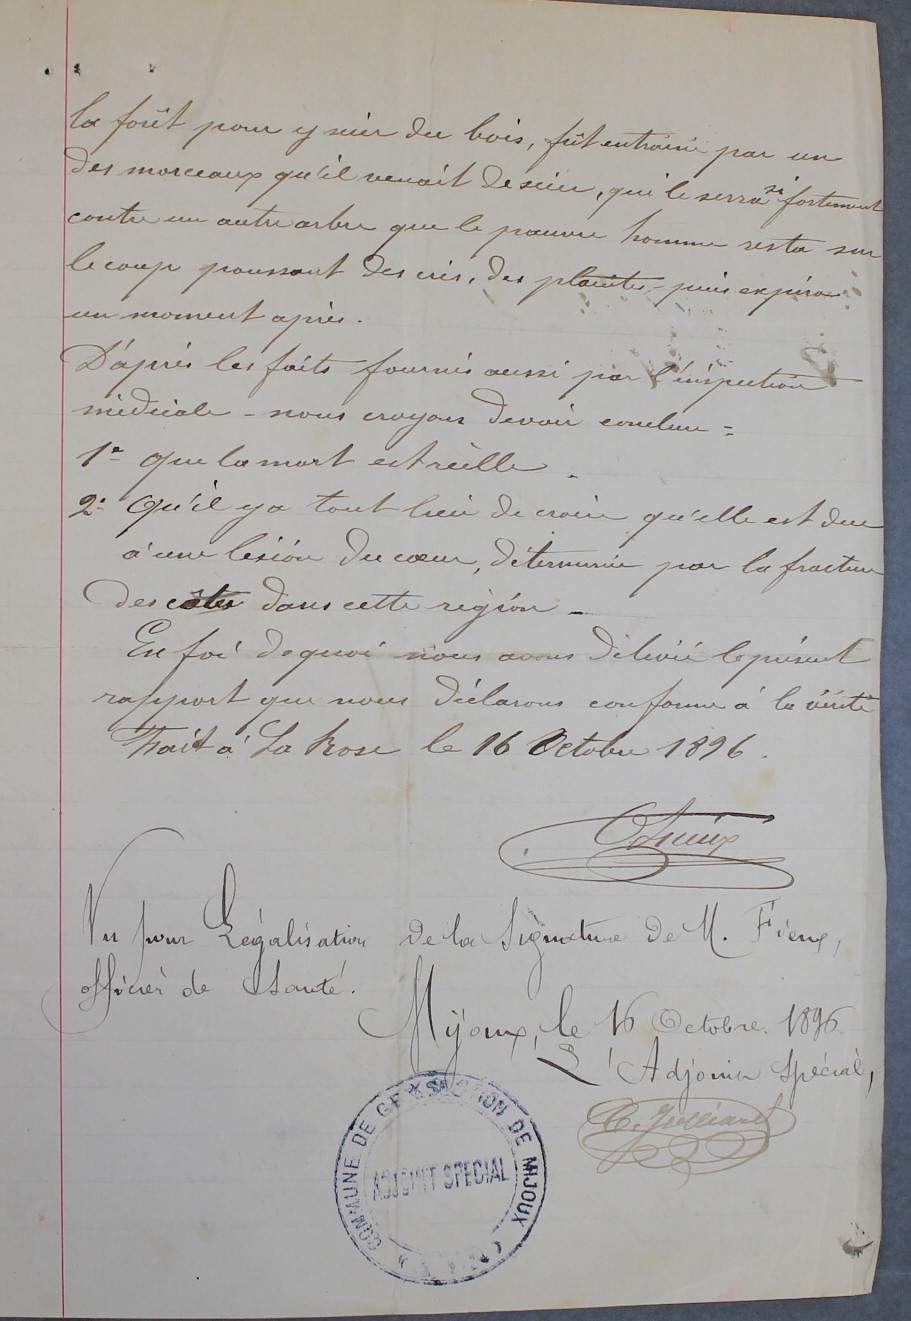 la forêt pour y scier du bois, fût entrainé par un
des morceaux qu'il venait de scier, qui le serra si fortement
contre un autre arbre que le pauvre homme resta sur
le coup poussant des cris, des plaintes - puis expira
un moment après.
D'après les faits fournis aussi par l'inspection
médicale - nous croyons devoir conclure =
1º que la mort est réelle.
2º Qu'il y a tout lieu de croire qu'elle est due
à une lésion du cœur, déterminée par la fracture
des côtes dans cette région -
En foi de quoi nous avons délivré le présent
rapport que nous déclarons conforme à la vérité
Fait à La Rose le 16 Octobre 1896.
Vu pour Légalisation de la Signature de M. Fieux,
officier de Santé.
Mijoux, le 16 Octobre. 1896
L'Adjoint Spécial,
COMMUNE DE GEX SECTION DE MIJOUX
ADJOINT SPECIAL